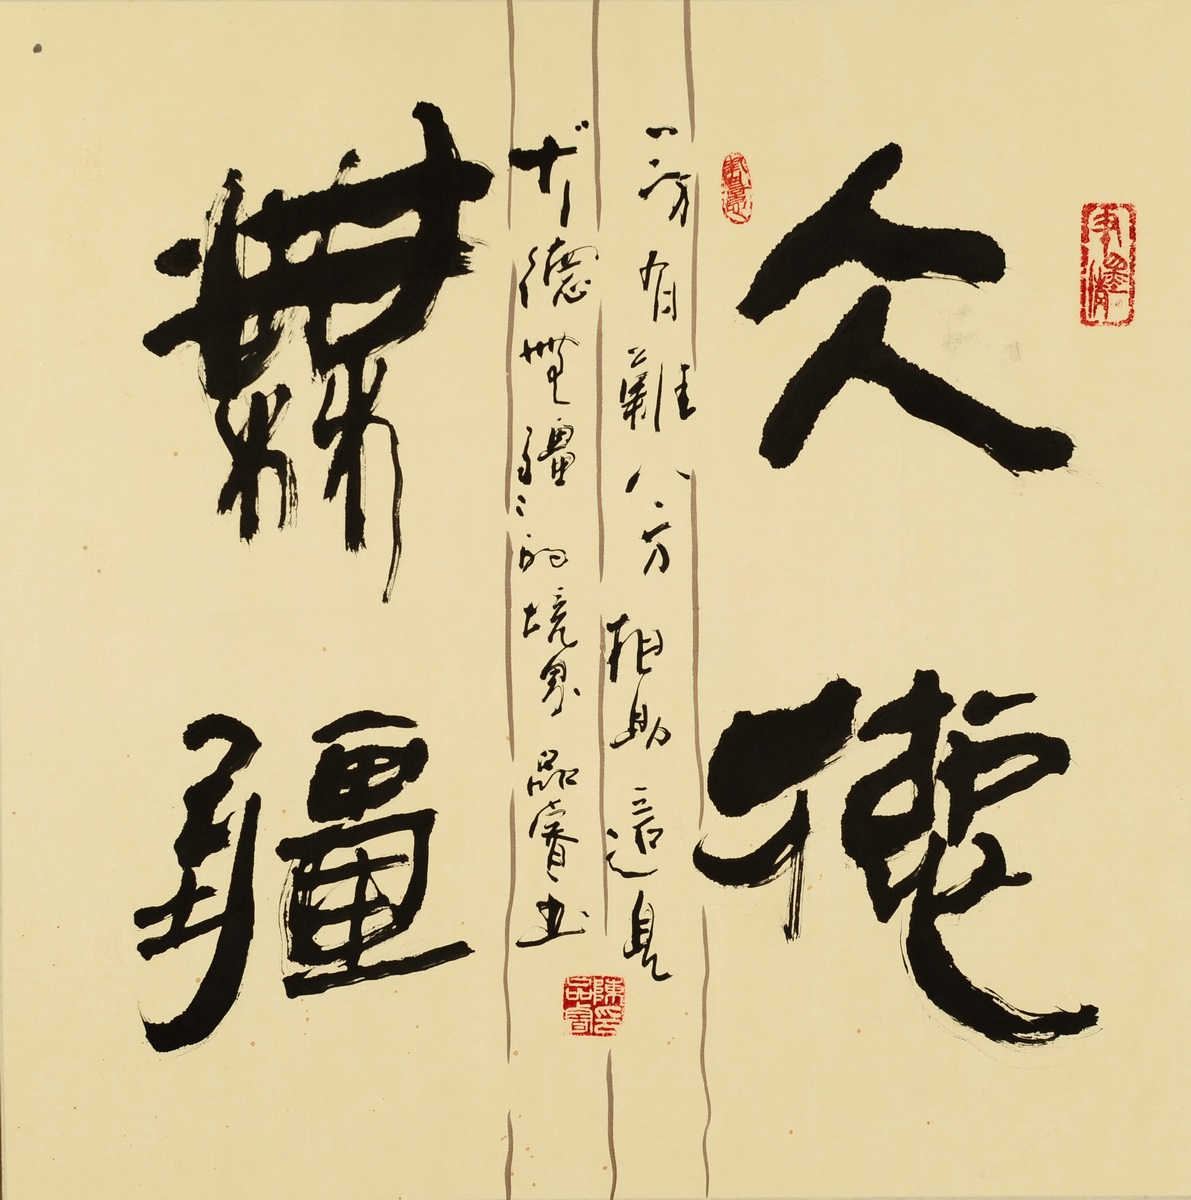 大德
一方有難八方相助這是
大德無疆的境界 品睿書
無疆
陳印品睿